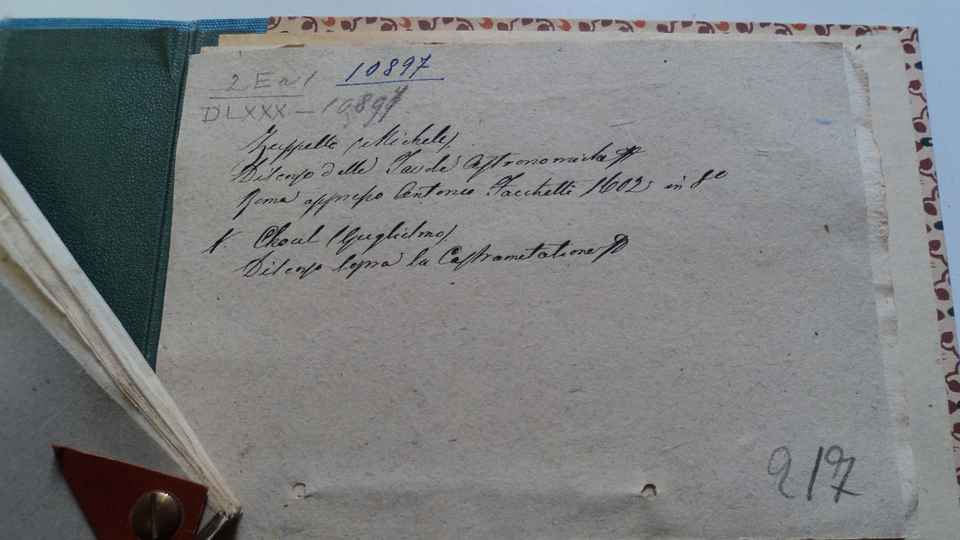 2 E a 1 10897
DLXXX — 10897
Zuppello (Michele)
Discorso delle Tavole Astronomiche
Roma appresso Antonio Facchetti 1602, in 8°
V. Choul (Guglielmo)
Discorso sopra la Castrametatione
217